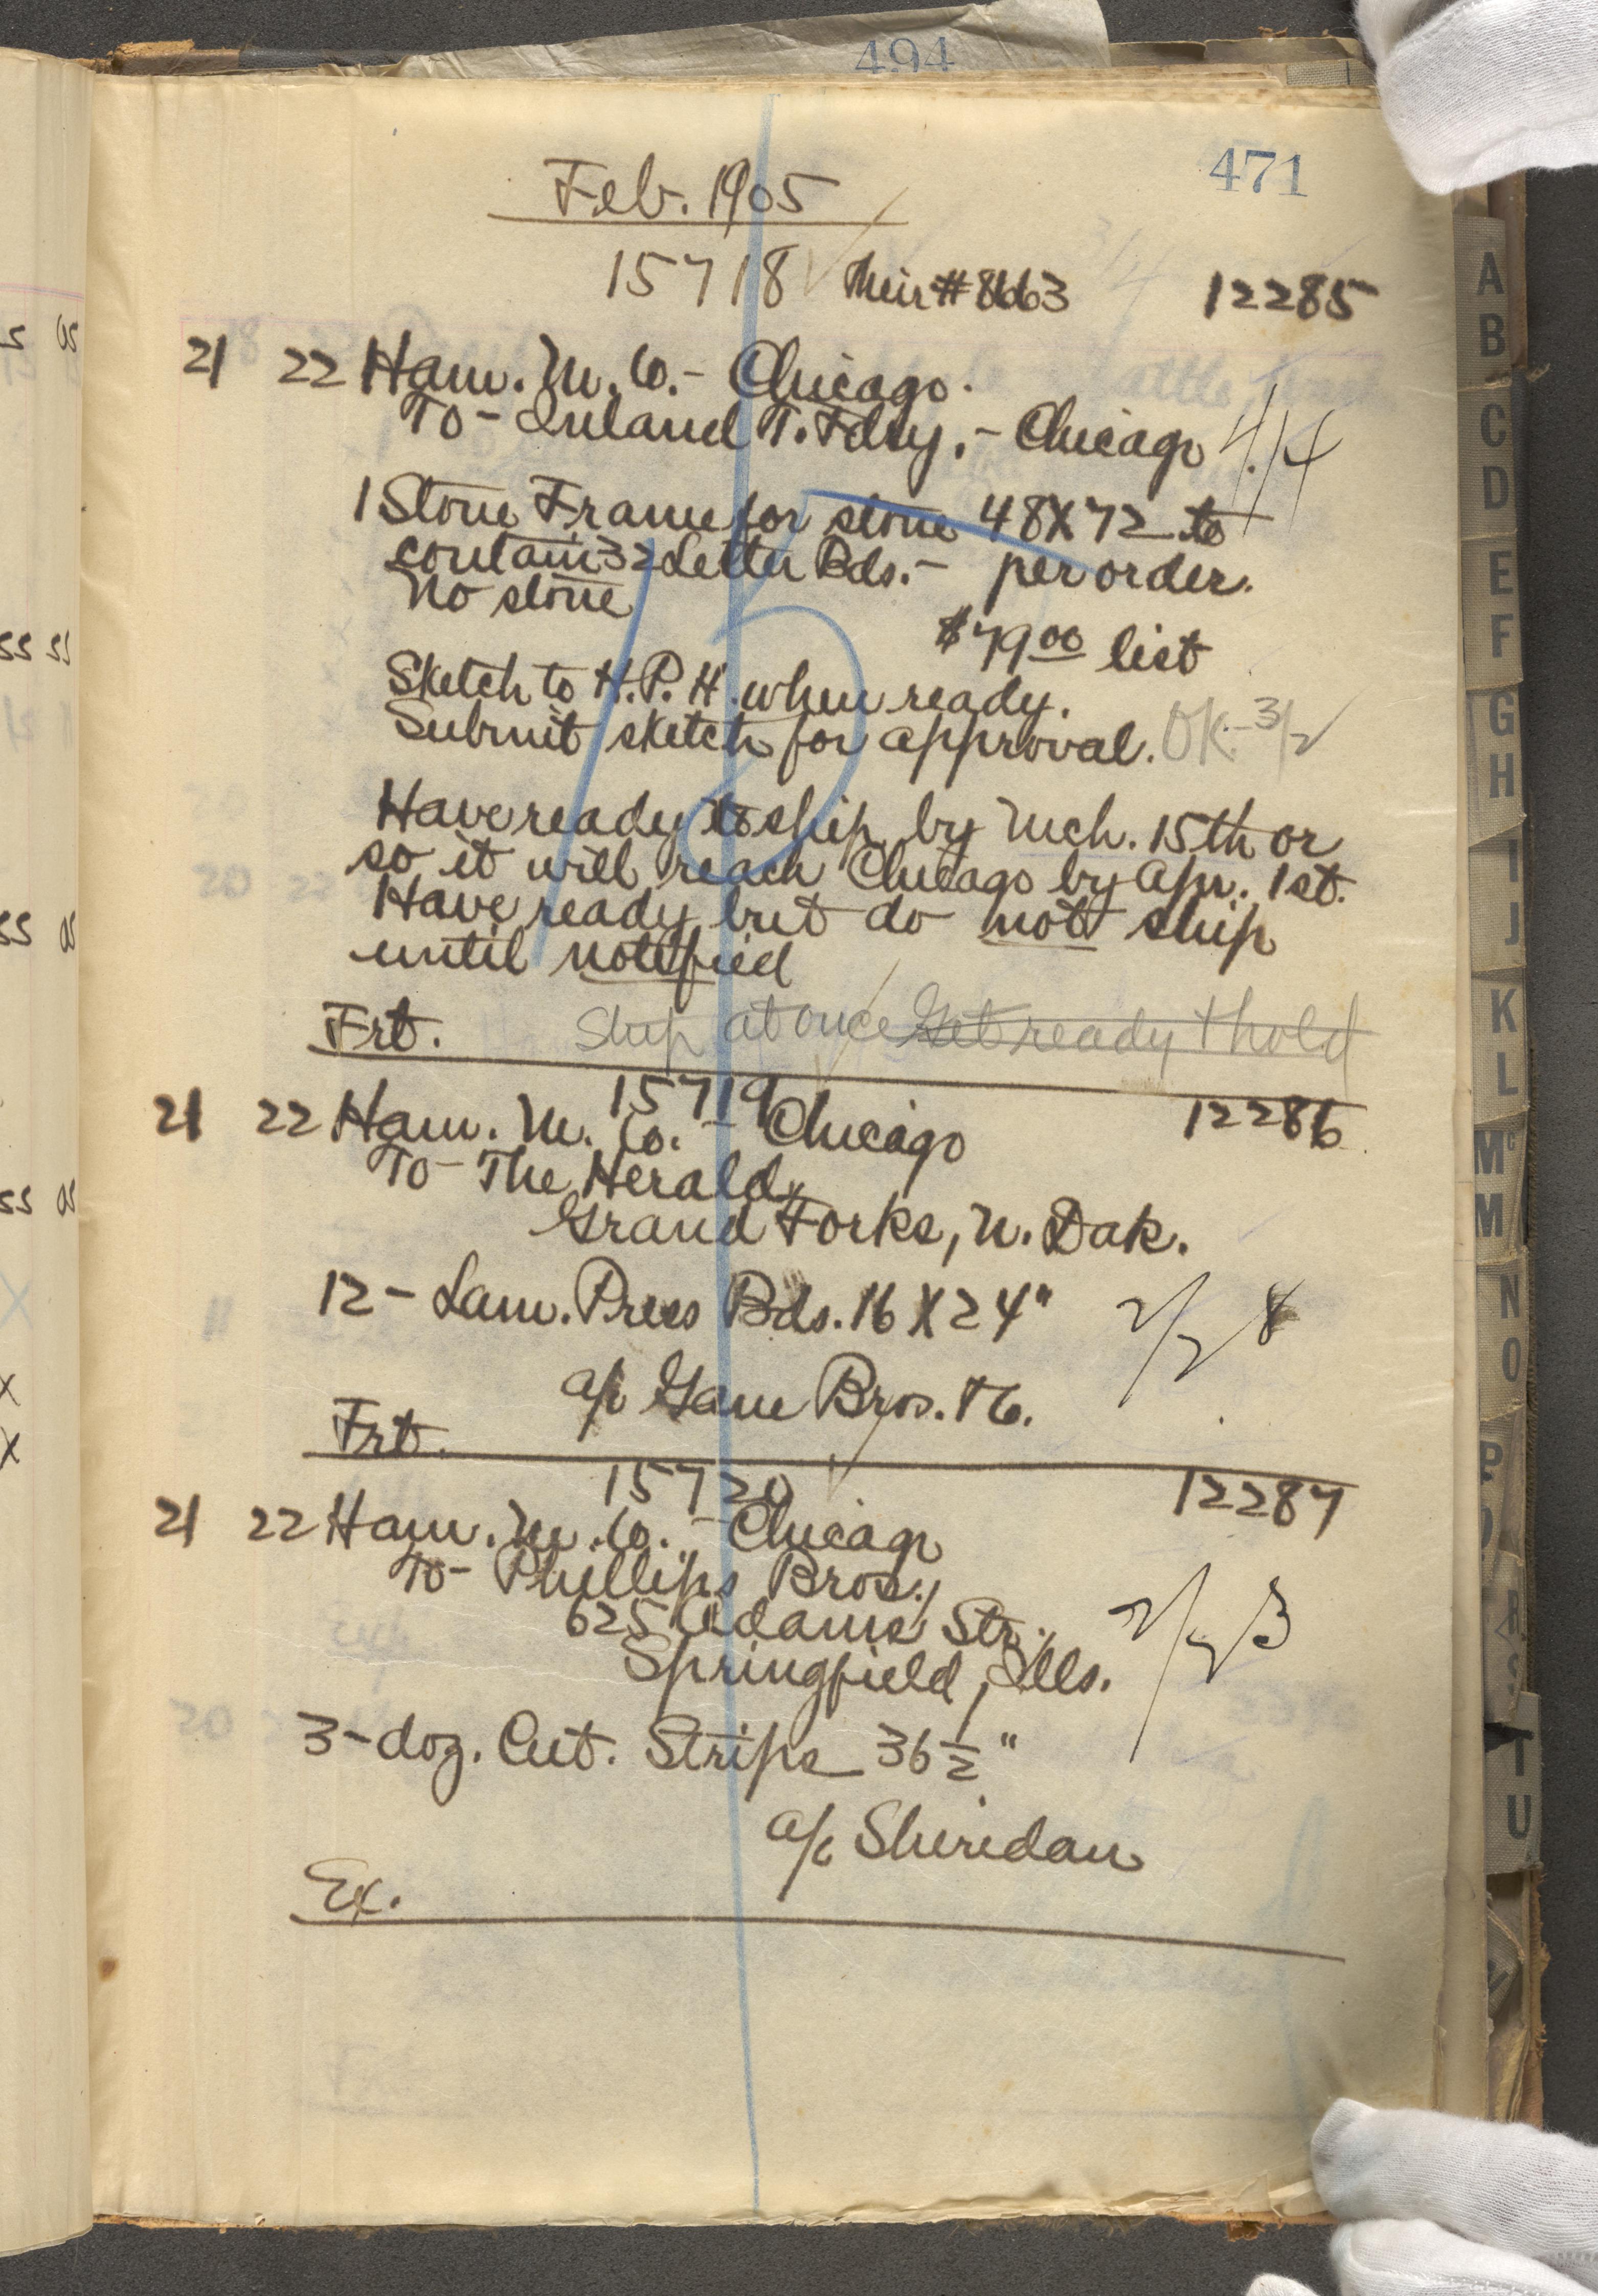 494
471
Feb. 1905
15718 Their #8663 12285
21 22 Ham. M. Co. - Chicago.
To - Inland T. Fdry. - Chicago 4/4
1 Stone Frame for stone 48X72 to
contain 32 Letter Bds. - per order.
No stone
$79.00 list
Sketch to H.P.H. when ready.
Submit sketch for approval. OK - 3/2
Have ready to ship by Mch. 15th or
so it will reach Chicago by Apr. 1st.
Have ready but do not ship
until notified
Frt. Ship at once Get ready & hold
15719 12286
21 22 Ham. M. Co. - Chicago
To - The Herald,
Grand Forks, N. Dak.
12 - Lam. Press Bds. 16 X 24" 2/28
a/c Gane Bros. & Co.
Frt.
15720 12287
21 22 Ham. M. Co. - Chicago
To - Phillips Bros.,
625 Adams Str., 2/23
Springfield, Ills.
3 - doz. Cut. Strips 36 1/2"
a/c Sheridan
Ex.
A
B
C
D
E
F
G
H
I
J
K
L
Mc
M
N
O
P
R
S
T
U